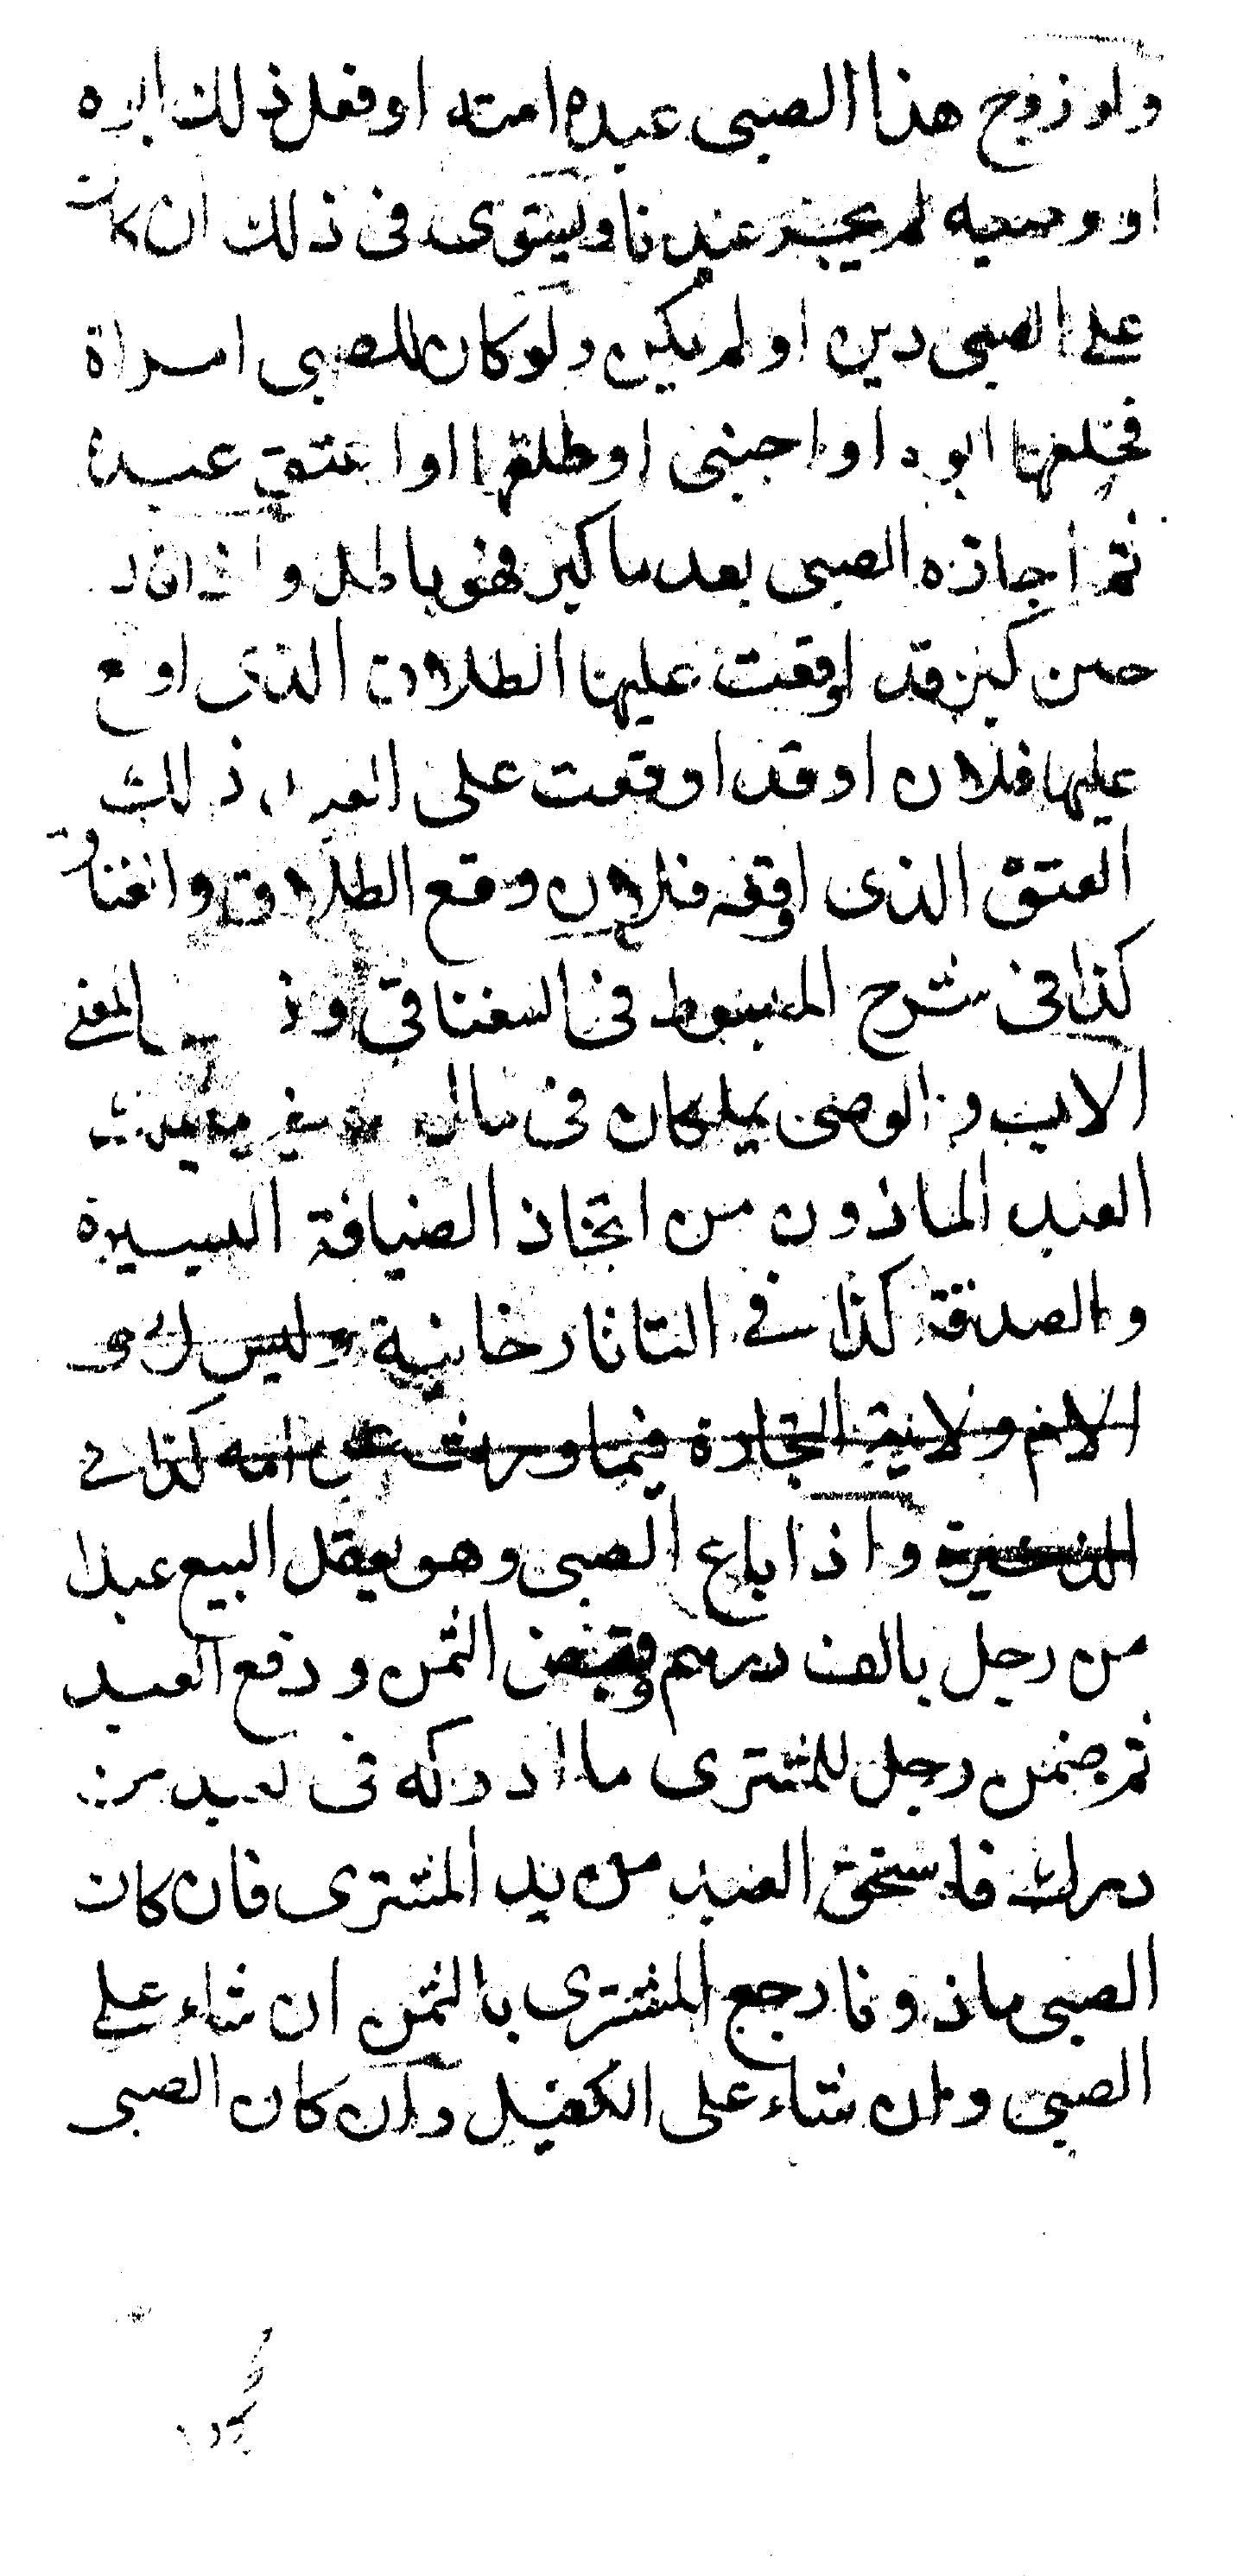 ولو زوج هذا الصبى عبده امته او فعل ذلك ابوه
او وصيه لم يجز عندنا ويستوى فى ذلك ان كان
على الصبى دين او لم يكن ولو كان للصبى امراة
فخلعها ابوه او اجنبى او طلقها او اعتق عبده
ثم اجازه الصبى بعد ما كبر فهو باطل وان قال
حين كبر قد اوقعت عليها الطلاق الذى اوقع
عليها فلان او قد اوقعت على العبد ذلك
العتق الذى اوقعه فلان وقع الطلاق والعتاق
كذا فى شرح المبسوط فى السغناقى وفى المغنى
الاب والوصى يملكان فى مال
العبد الماذون من اتخاذ الضيافة اليسيرة
والصدقة كذا فى التاتارخانية وليس
الام ولاية التجارة فيما ورث عن امه كذا فى
الذخيرة واذا باع الصبى وهو يعقل البيع عبدا
من رجل بالف درهم وقبض الثمن ودفع العبد
ثم ضمن رجل للمشترى ما ادركه فى العبد من
درك فاستحق العبد من يد المشترى فان كان
الصبى ماذونا رجع المشترى بالثمن ان شاء على
الصبى وان شاء على الكفيل وان كان الصبى